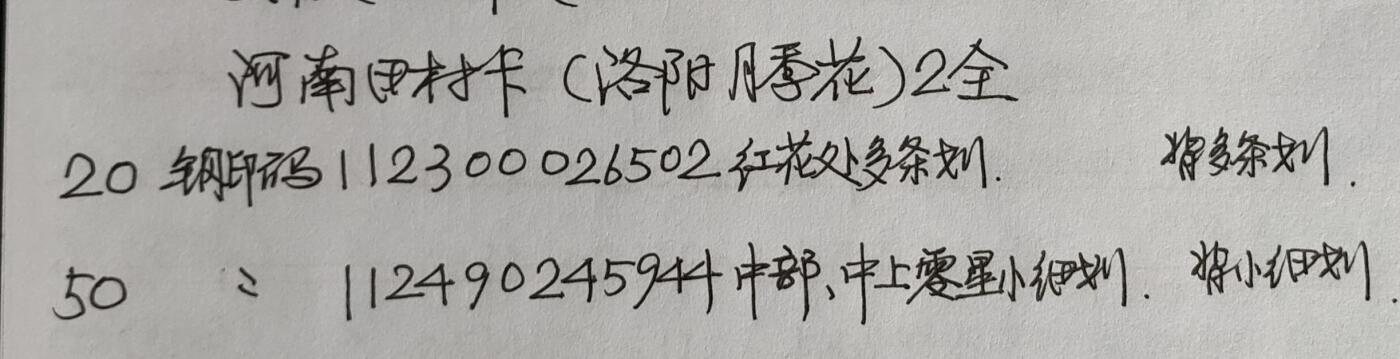 河南田村卡(洛阳月季花)2全
20 钢印码112300026502红花处多条划. 背多条划.
50 〃 112490245944中部、中上零星小细划. 背小细划.